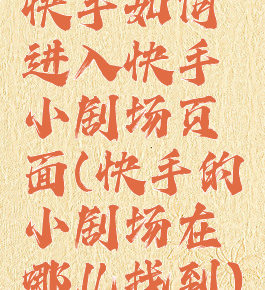 快手如何
进入快手
小剧场页
面(快手的
小剧场在
哪儿找到)